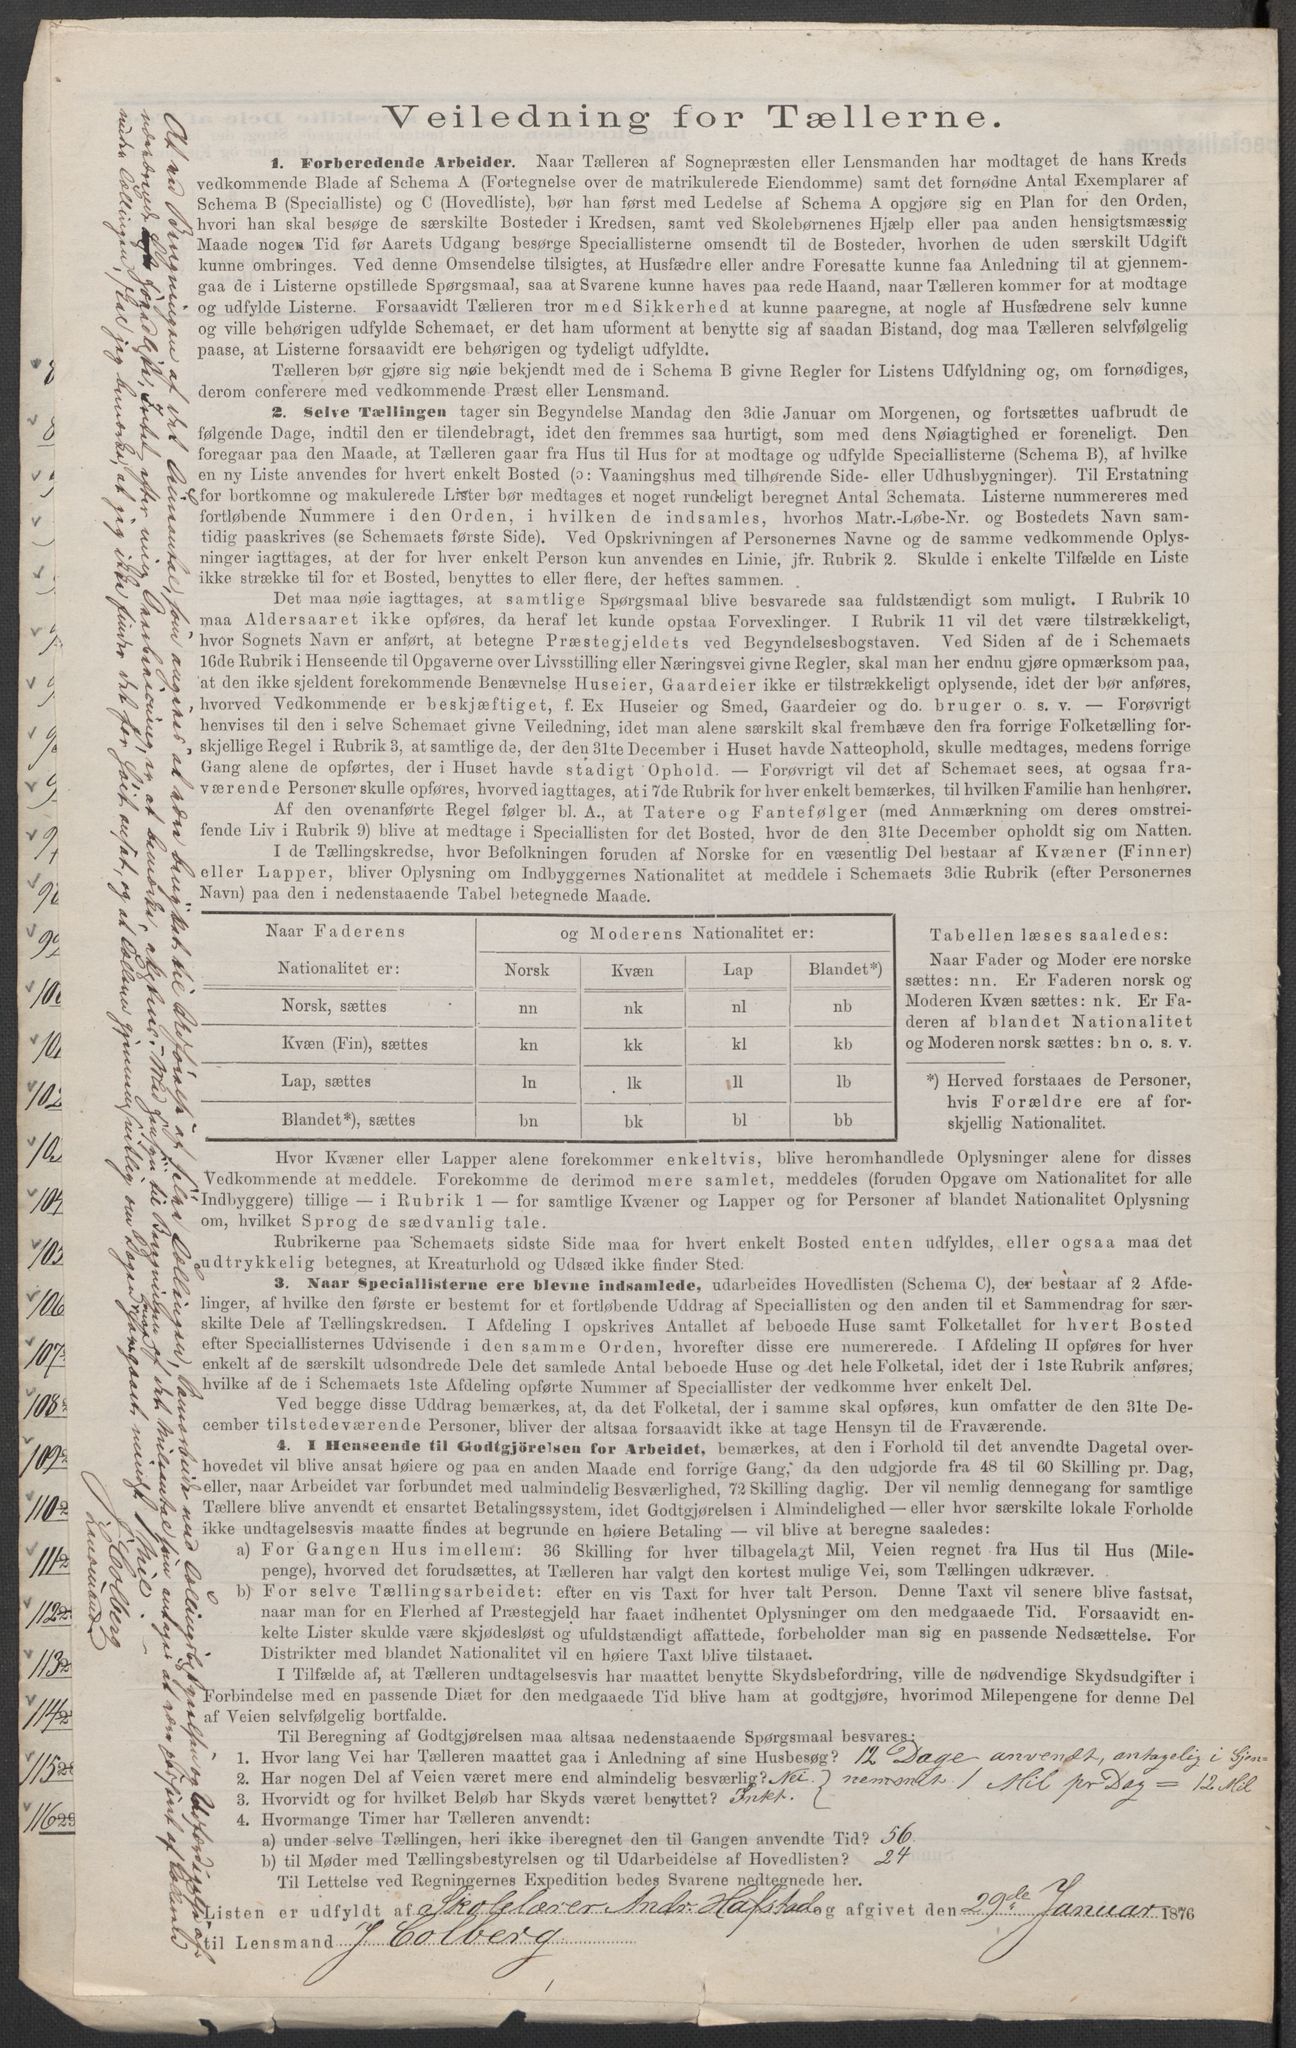 Veiledning for Tællerne.
1. Forberedende Arbeider. Naar Tælleren af Sognepræsten eller Lensmanden har modtaget de hans Kreds
vedkommende Blade af Schema A (Fortegnelse over de matrikulerede Eiendomme) samt det fornødne Antal Exemplarer af
Schema B (Specialliste) og C (Hovedliste), bør han først med Ledelse af Schema A opgjøre sig en Plan for den Orden,
hvori han skal besøge de særskilte Bosteder i Kredsen, samt ved Skolebørnenes Hjælp eller paa anden hensigtsmæssig
Maade nogen Tid før Aarets Udgang besørge Speciallisterne omsendt til de Bosteder, hvorhen de uden særskilt Udgift
kunne ombringes. Ved denne Omsendelse tilsigtes, at Husfædre eller andre Foresatte kunne faa Anledning til at gjennem-
gaa de i Listerne opstillede Spørgsmaal, saa at Svarene kunne haves paa rede Haand, naar Tælleren kommer for at modtage
og udfylde Listerne. Forsaavidt Tælleren tror med Sikkerhed at kunne paaregne, at nogle af Husfædrene selv kunne
og ville behørigen udfylde Schemaet, er det ham uforment at benytte sig af saadan Bistand, dog maa Tælleren selvfølgelig
paase, at Listerne forsaavidt ere behørigen og tydeligt udfyldte.
Tælleren bør gjøre sig nøie bekjendt med de i Schema B givne Regler for Listens Udfyldning og, om fornødiges,
derom conferere med vedkommende Præst eller Lensmand.
2. Selve Tællingen tager sin Begyndelse Mandag den 3die Januar om Morgenen, og fortsættes uafbrudt de
følgende Dage, indtil den er tilendebragt, idet den fremmes saa hurtigt, som med dens Nøiagtighed er foreneligt. Den
foregaar paa den Maade, at Tælleren gaar fra Hus til Hus for at modtage og udfylde Speciallisterne (Schema B), af hvilke
en ny Liste anvendes for hvert enkelt Bosted (ɔ: Vaaningshus med tilhørende Side- eller Udhusbygninger). Til Erstatning
for bortkomne og makulerede Lister bør medtages et noget rundeligt beregnet Antal Schemata. Listerne nummereres med
fortløbende Nummere i den Orden, i hvilken de indsamles, hvorhos Matr.-Løbe-Nr. og Bostedets Navn sam-
tidig paaskrives (se Schemaets første Side). Ved Opskrivningen af Personernes Navne og de samme vedkommende Oplys-
ninger iagttages, at der for hver enkelt Person kun anvendes en Linie, jfr. Rubrik 2. Skulde i enkelte Tilfælde en Liste
ikke strække til for et Bosted, benyttes to eller flere, der heftes sammen.
Det maa nøie iagttages, at samtlige Spørgsmaal blive besvarede saa fuldstændigt som muligt. I Rubrik 10
maa Aldersaaret ikke opføres, da heraf let kunde opstaa Forvexlinger. I Rubrik 11 vil det være tilstrækkeligt,
hvor Sognets Navn er anført, at betegne Præstegjeldets ved Begyndelsesbogstaven. Ved Siden af de i Schemaets
16de Rubrik i Henseende til Opgaverne over Livsstilling eller Næringsvei givne Regler, skal man her endnu gjøre opmærksom paa,
at den ikke sjeldent forekommende Benævnelse Huseier, Gaardeier ikke er tilstrækkeligt oplysende, idet der bør anføres,
hvorved Vedkommende er beskjæftiget, f. Ex Huseier og Smed, Gaardeier og do. bruger o. s. v. — Forøvrigt
henvises til den i selve Schemaet givne Veiledning, idet man alene særskilt skal fremhæve den fra forrige Folketælling for-
skjellige Regel i Rubrik 3, at samtlige de, der den 31te December i Huset havde Natteophold, skulle medtages, medens forrige
Gang alene de opførtes, der i Huset havde stadigt Ophold. — Forøvrigt vil det af Schemaet sees, at ogsaa fra-
værende Personer skulle opføres, hvorved iagttages, at i 7de Rubrik for hver enkelt bemærkes, til hvilken Familie han henhører.
Af den ovenanførte Regel følger bl. A., at Tatere og Fantefølger (med Anmærkning om deres omstrei-
fende Liv i Rubrik 9) blive at medtage i Speciallisten for det Bosted, hvor de den 31te December opholdt sig om Natten.
I de Tællingskredse, hvor Befolkningen foruden af Norske for en væsentlig Del bestaar af Kvæner (Finner)
eller Lapper, bliver Oplysning om Indbyggernes Nationalitet at meddele i Schemaets 3die Rubrik (efter Personernes
Navn) paa den i nedenstaaende Tabel betegnede Maade.
Naar Faderens og Moderens Nationalitet er:
Nationalitet er: Norsk Kvæn Lap Blandet*)
Norsk, sættes nn nk nl nb
Kvæn (Fin), sættes kn kk kl kb
Lap, sættes ln lk ll lb
Blandet*), sættes bn bk bl bb
Tabellen læses saaledes:
Naar Fader og Moder ere norske
sættes: nn. Er Faderen norsk og
Moderen Kvæn sættes: nk. Er Fa-
deren af blandet Nationalitet
og Moderen norsk sættes: bn o. s. v.
*) Herved forstaaes de Personer,
hvis Forældre ere af for-
skjellig Nationalitet.
Hvor Kvæner eller Lapper alene forekommer enkeltvis, blive heromhandlede Oplysninger alene for disses
Vedkommende at meddele. Forekomme de derimod mere samlet, meddeles (foruden Opgave om Nationalitet for alle
Indbyggere) tillige — i Rubrik 1 — for samtlige Kvæner og Lapper og for Personer af blandet Nationalitet Oplysning
om, hvilket Sprog de sædvanlig tale.
Rubrikerne paa Schemaets sidste Side maa for hvert enkelt Bosted enten udfyldes, eller ogsaa maa det
udtrykkelig betegnes, at Kreaturhold og Udsæd ikke finder Sted.
3. Naar Speciallisterne ere blevne indsamlede, udarbeides Hovedlisten (Schema C), der bestaar af 2 Afde-
linger, af hvilke den første er bestemt for et fortløbende Uddrag af Speciallisten og den anden til et Sammendrag for sær-
skilte Dele af Tællingskredsen. I Afdeling I opskrives Antallet af beboede Huse samt Folketallet for hvert Bosted
efter Speciallisternes Udvisende i den samme Orden, hvorefter disse ere nummererede. I Afdeling II opføres for hver
enkelt af de særskilt udsondrede Dele det samlede Antal beboede Huse og det hele Folketal, idet der i 1ste Rubrik anføres,
hvilke af de i Schemaets 1ste Afdeling opførte Nummer af Speciallister der vedkomme hver enkelt Del.
Ved begge disse Uddrag bemærkes, at, da det Folketal, der i samme skal opføres, kun omfatter de den 31te De-
cember tilstedeværende Personer, bliver der altsaa forsaavidt ikke at tage Hensyn til de Fraværende.
4. I Henseende til Godtgjörelsen for Arbeidet, bemærkes, at den i Forhold til det anvendte Dagetal over-
hovedet vil blive ansat høiere og paa en anden Maade end forrige Gang, da den udgjorde fra 48 til 60 Skilling pr. Dag,
eller, naar Arbeidet var forbundet med ualmindelig Besværlighed, 72 Skilling daglig. Der vil nemlig dennegang for samtlige
Tællere blive anvendt et ensartet Betalingssystem, idet Godtgjörelsen i Almindelighed — eller hvor særskilte lokale Forholde
ikke undtagelsesvis maatte findes at begrunde en høiere Betaling — vil blive at beregne saaledes:
a) For Gangen Hus imellem: 36 Skilling for hver tilbagelagt Mil, Veien regnet fra Hus til Hus (Mile-
penge), hvorved det forudsættes, at Tælleren har valgt den kortest mulige Vei, som Tællingen udkræver.
b) For selve Tællingsarbeidet: efter en vis Taxt for hver talt Person. Denne Taxt vil senere blive fastsat,
naar man for en Flerhed af Præstegjeld har faaet indhentet Oplysninger om den medgaaede Tid. Forsaavidt en-
kelte Lister skulde være skjødesløst og ufuldstændigt affattede, forbeholder man sig en passende Nedsættelse. For
Distrikter med blandet Nationalitet vil en høiere Taxt blive tilstaaet.
I Tilfælde af, at Tælleren undtagelsesvis har maattet benytte Skydsbefordring, ville de nødvendige Skydsudgifter i
Forbindelse med en passende Diæt for den medgaaede Tid blive ham at godtgjøre, hvorimod Milepengene for denne Del
af Veien selvfølgelig bortfalde.
Til Beregning af Godtgjørelsen maa altsaa nedenstaaende Spørgsmaal besvares:
1. Hvor lang Vei har Tælleren maattet gaa i Anledning af sine Husbesøg? 12 Dage anvendt, antagelig i Gjen-
2. Har nogen Del af Veien været mere end almindelig besværlig? Nei. nemsnit 1 Mil pr Dag = 12 Mil
3. Hvorvidt og for hvilket Beløb har Skyds været benyttet? Inkt.
4. Hvormange Timer har Tælleren anvendt:
a) under selve Tællingen, heri ikke iberegnet den til Gangen anvendte Tid? 56
b) til Møder med Tællingsbestyrelsen og til Udarbeidelse af Hovedlisten? 24
Til Lettelse ved Regningernes Expedition bedes Svarene nedtegnede her.
Listen er udfyldt af Skolelærer Andr. Hafstad og afgivet den 29de Januar 1876
til Lensmand J Colberg
J Colberg
Lensmand
99
102
104
105
106
107
108
109
110
111
112
113
114
115
116